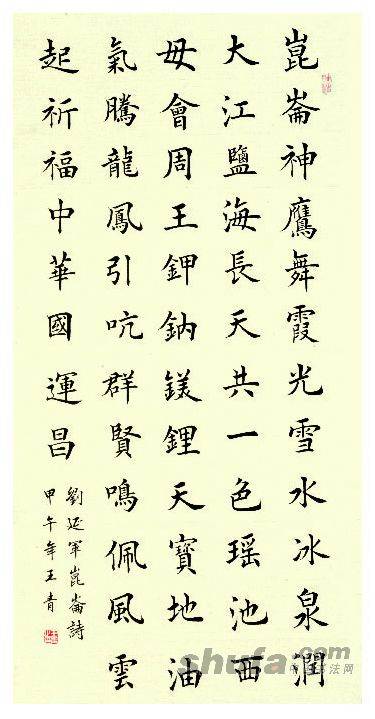 崑崙神鷹舞霞光雪水冰泉潤
大江鹽海長天共一色瑶池西
母會周王鉀鈉鎂鋰天寶地油
氣騰龍鳳引吭群賢鳴佩風雲
起祈福中華國運昌
劉延軍崑崙詩
甲午年王青
shufa.com
书法网